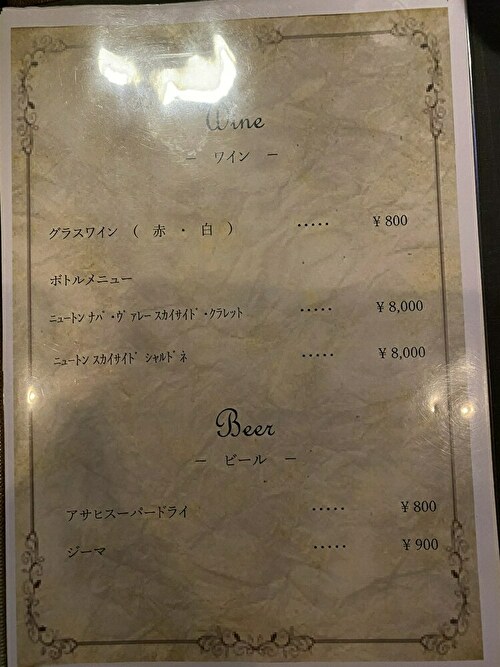 Wine
－ ワイン －
グラスワイン （ 赤 ・ 白 ） ・・・・・ ¥ 800
ボトルメニュー
ﾆｭｰﾄﾝ ﾅﾊﾟ･ｳﾞｧﾚｰ ｽｶｲｻｲﾄﾞ･ｸﾗﾚｯﾄ ・・・・・ ¥ 8,000
ﾆｭｰﾄﾝ ｽｶｲｻｲﾄﾞ ｼｬﾙﾄﾞﾈ ・・・・・ ¥ 8,000
Beer
－ ビール －
アサヒスーパードライ ・・・・・ ¥ 800
ジーマ ・・・・・ ¥ 900